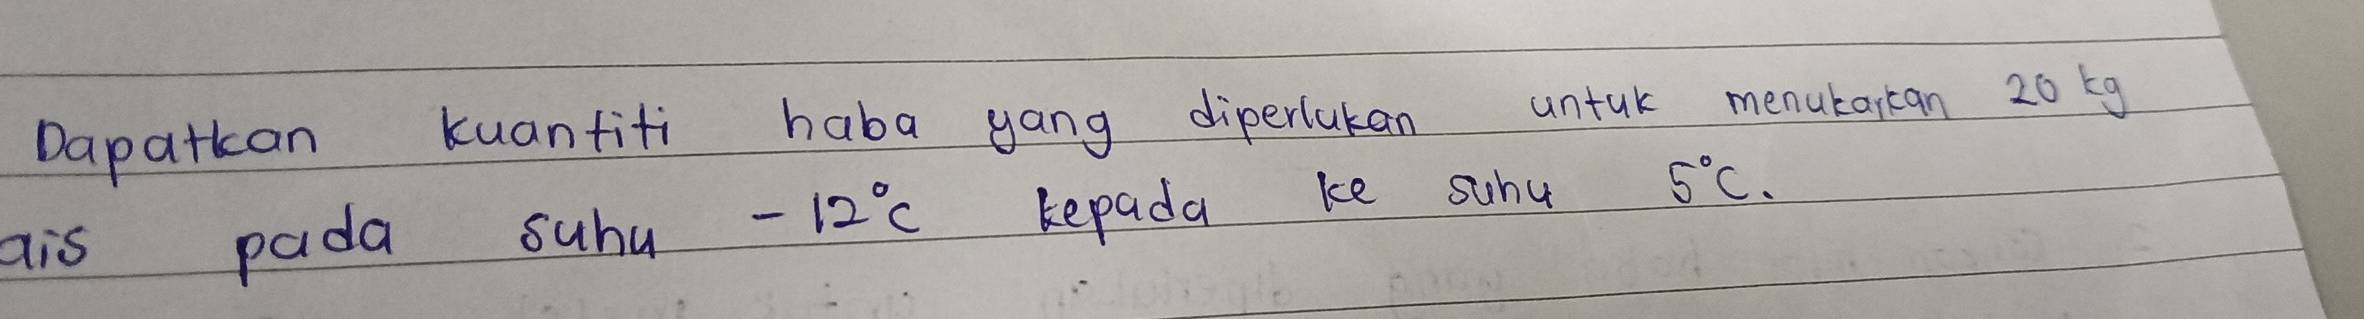 Dapatkan kuantiti haba yang diperlukan untuk menukarkan 20 kg
ais pada suhu -12°C kepada ke suhu 5°C.